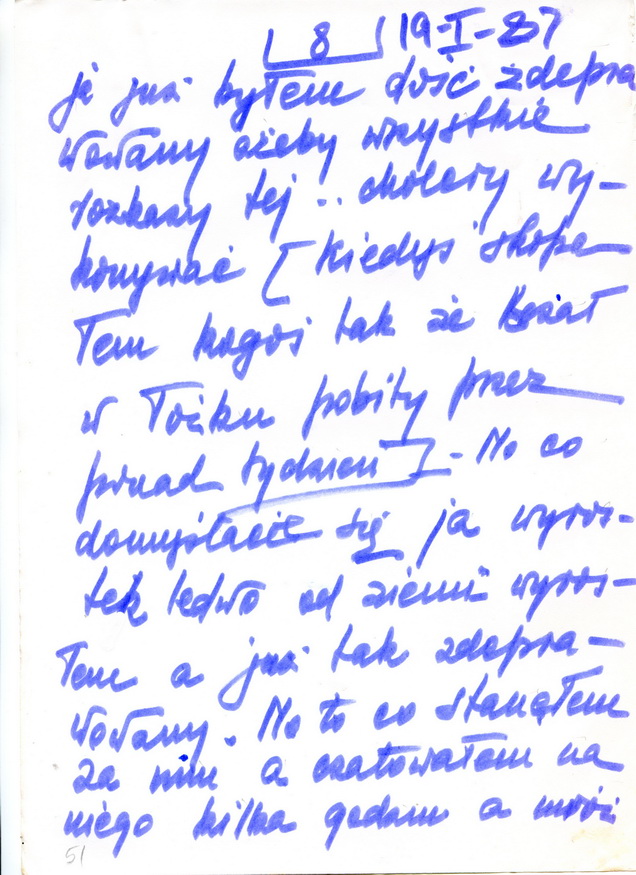 8 19-I-87
ja już byłem dość zdepra
wowany ażeby wszystkie
rozkazy tej .. cholery wy-
konywać [ Kiedyś skopa
łem kogoś tak że leżał
w łóżku pobity przez
ponad tydzień ] - No co
domyślacie się ja wyros-
tek ledwo od ziemi wyros-
łem a już tak zdepra-
wowany. No to co stanąłem
za nim a czatowałem na
niego kilka godzin a mróz
51